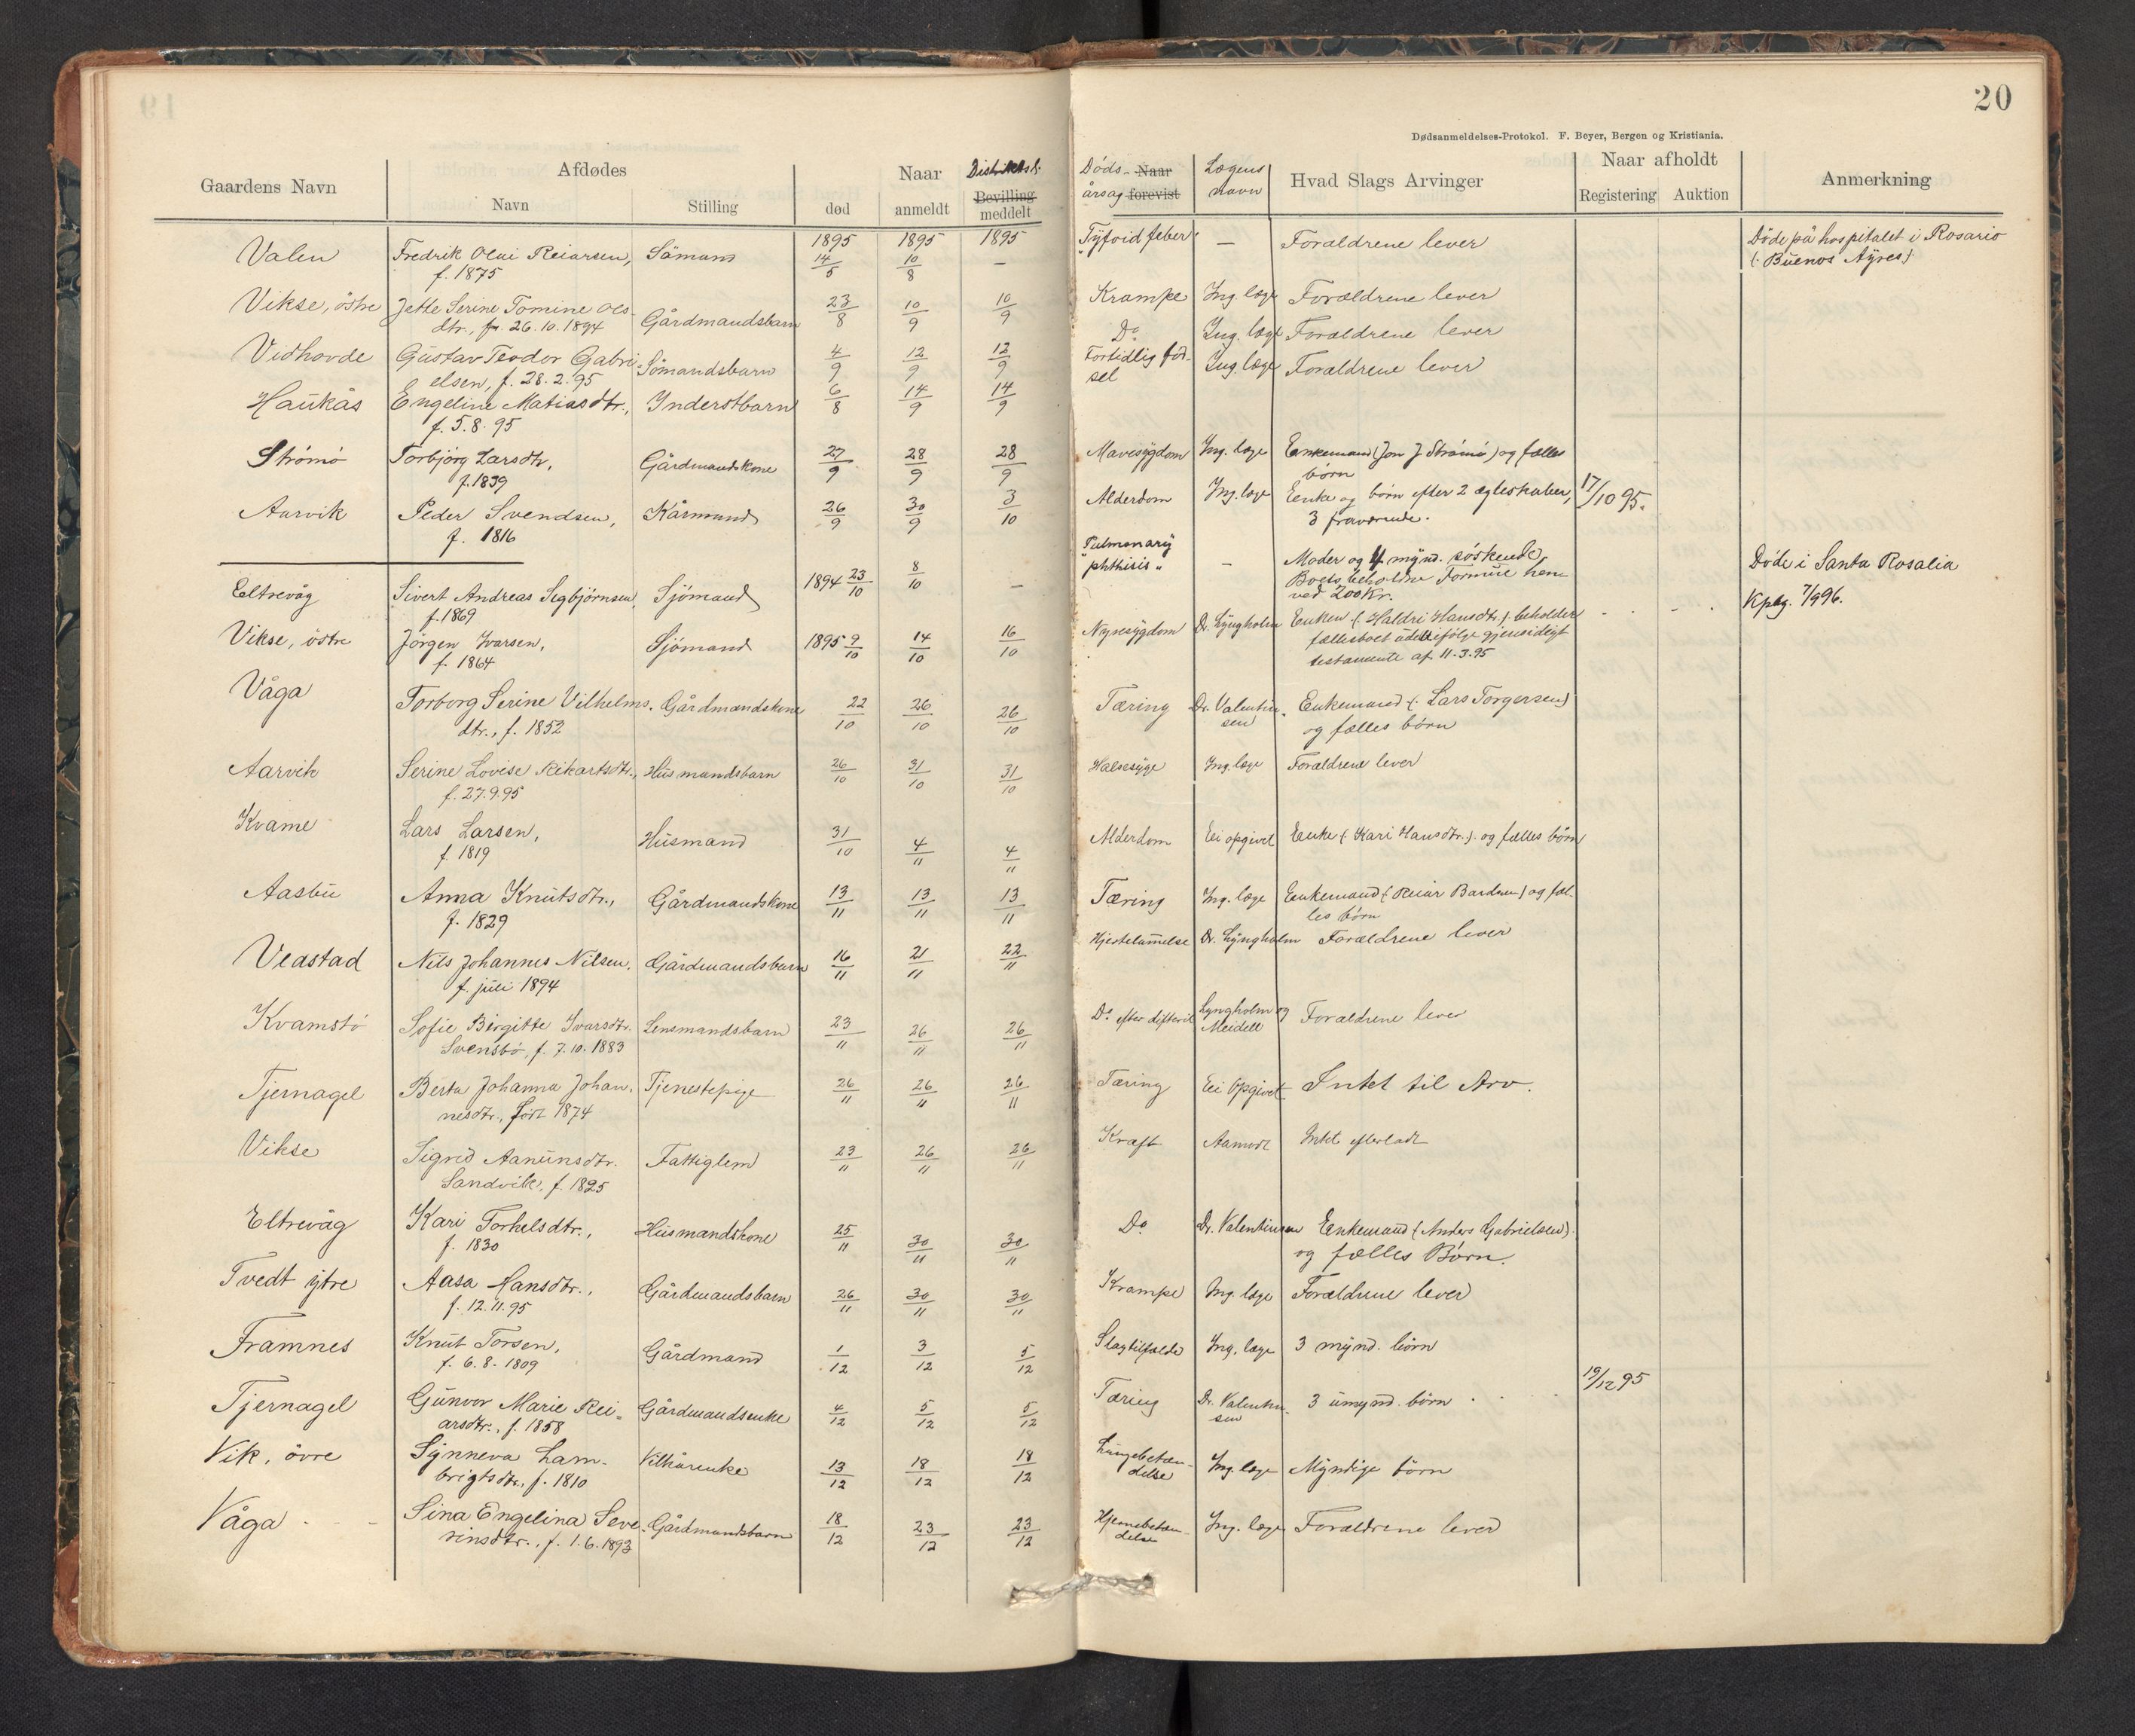 20
Dødsanmeldelses-Protokol. F. Beyer, Bergen og Kristiania.
Gaardens Navn
Afdødes
Navn
Stilling
Naar
død
anmeldt
Distriktsl.
Bevilling
meddelt
Døds- Naar
årsag forevist
Lægens
navn
Hvad Slags Arvinger
Naar afholdt
Registering
Auktion
Anmerkning
1895 1895 1895
Valen Fredrik Olai Reiarsen, Sömand 14/5 10/8 — Tyfoid feber — Forældrene lever Döde på hospitalet i Rosario
f. 1875 (: Buenos Ayres :)
Vikse, östre Jette Serine Tomine Ols- Gårdmandsbarn 23/8 10/9 10/9 Krampe Ing. læge Forældrene lever
dtr., f. 26.10.1894
Vidhovde Gustav Teodor Gabri- Sömandsbarn 4/9 12/9 12/9 Do Ing. læge Forældrene lever
elsen, f. 28.2.95
Haukås Engeline Matiasdtr., Inderstbarn 6/8 14/9 14/9 Fortidlig föd- Ing. læge Forældrene lever
f. 5.8.95 sel
Strömö Torbjörg Larsdtr, Gårdmandskone 27/9 28/9 28/9 Mavesygdom Ing. læge Enkemand (Jon J. Strömö) og fælles
f. 1839 börn
Aarvik Peder Svendsen, Kårmand 26/9 30/9 3/10 Alderdom Ing. læge Enke og börn efter 2 ægteskaber, 17/10 95.
f. 1816 3 fraværende.
Eltrevåg Sivert Andreas Segbjörnsen, Sjömand 1894 23/10 8/10 — Pulmonary phthisis — Moder og 4 mynd. söskende
f. 1869 Boets beholdne Formue hen-
ved 200 Kr.
Döde i Santa Rosalia
Vikse, östre Jörgen Ivarsen, Sjömand 1895 9/10 14/10 16/10 Nyresygdom Dr. Lyngholm Enken (: Haldri Hansdtr :) beholder
f. 1864 fællesboet udelt ifölge gjensidigt
testamente af 11.3.95
Våga Torborg Serine Vilhelms- Gårdmandskone 22/10 26/10 26/10 Tæring Dr. Valentin- Enkemand (: Lars Torgersen)
dtr., f. 1852 sen og fælles börn
Aarvik Serine Lovise Rikartsdtr., Husmandsbarn 26/10 31/10 31/10 Halsesyge Ing. læge Forældrene lever
f. 27.9.95
Kvame Lars Larsen, Husmand 31/10 4/11 4/11 Alderdom Ei opgivet Enke (: Kari Hansdtr. :) og fælles börn
f. 1819
Aasbu Anna Knutsdtr., Gårdmandskone 13/11 13/11 13/11 Tæring Ing. læge Enkemand (: Reiar Bardsen) og fæl-
f. 1829 les börn
Veastad Nils Johannes Nilsen, Gårdmandsbarn 16/11 21/11 22/11 Hjertelammelse Dr. Lyngholm Forældrene lever
f. juli 1894
Kvamstö Sofie Birgitte Ivarsdtr. Lensmandsbarn 23/11 26/11 26/11 Do efter difterit Lyngholm og Forældrene lever
Svensbö, f. 7.10.1883 Meidell
Tjernagel Berta Johanna Johan- Tjenestepige 26/11 26/11 26/11 Tæring Ei Opgivet Intet til Arv.
nesdtr., född 1874
Vikse Sigrid Aanunsdtr. Fattiglem 23/11 26/11 26/11 Kræft Intet efterladt
Sandvik, f. 1825
Eltrevåg Kari Torkelsdtr., Husmandskone 25/11 30/11 30/11 Do Dr. Valentinsen Enkemand (Anders Gabrielsen)
f. 1830 og fælles Börn.
Tvedt ytre Aasa Hansdtr., Gårdmandsbarn 26/11 30/11 30/11 Krampe Ing. læge Forældrene lever
f. 12.11.95
Framnes Knut Torsen, Gårdmand 1/12 3/12 5/12 Slagtilfælde Ing. læge 3 mynd. börn
f. 6.8.1809
Tjernagel Gunvor Marie Rei- Gårdmandsenke 4/12 5/12 5/12 Tæring Dr. Valentin- 3 umynd. börn 19/12 95
arsdtr., f. 1858 sen
Vik, övre Synneva Lam- Vilkårenke 13/12 18/12 18/12 Lungebetæn- Ing. læge Myndige börn
brigtsdtr., f. 1810 delse
Våga Sina Engelina Seve- Gårdmandsbarn 18/12 23/12 23/12 Hjernebetæn- Ing. læge Forældrene lever
rinsdtr., f. 1.6.1893 delse